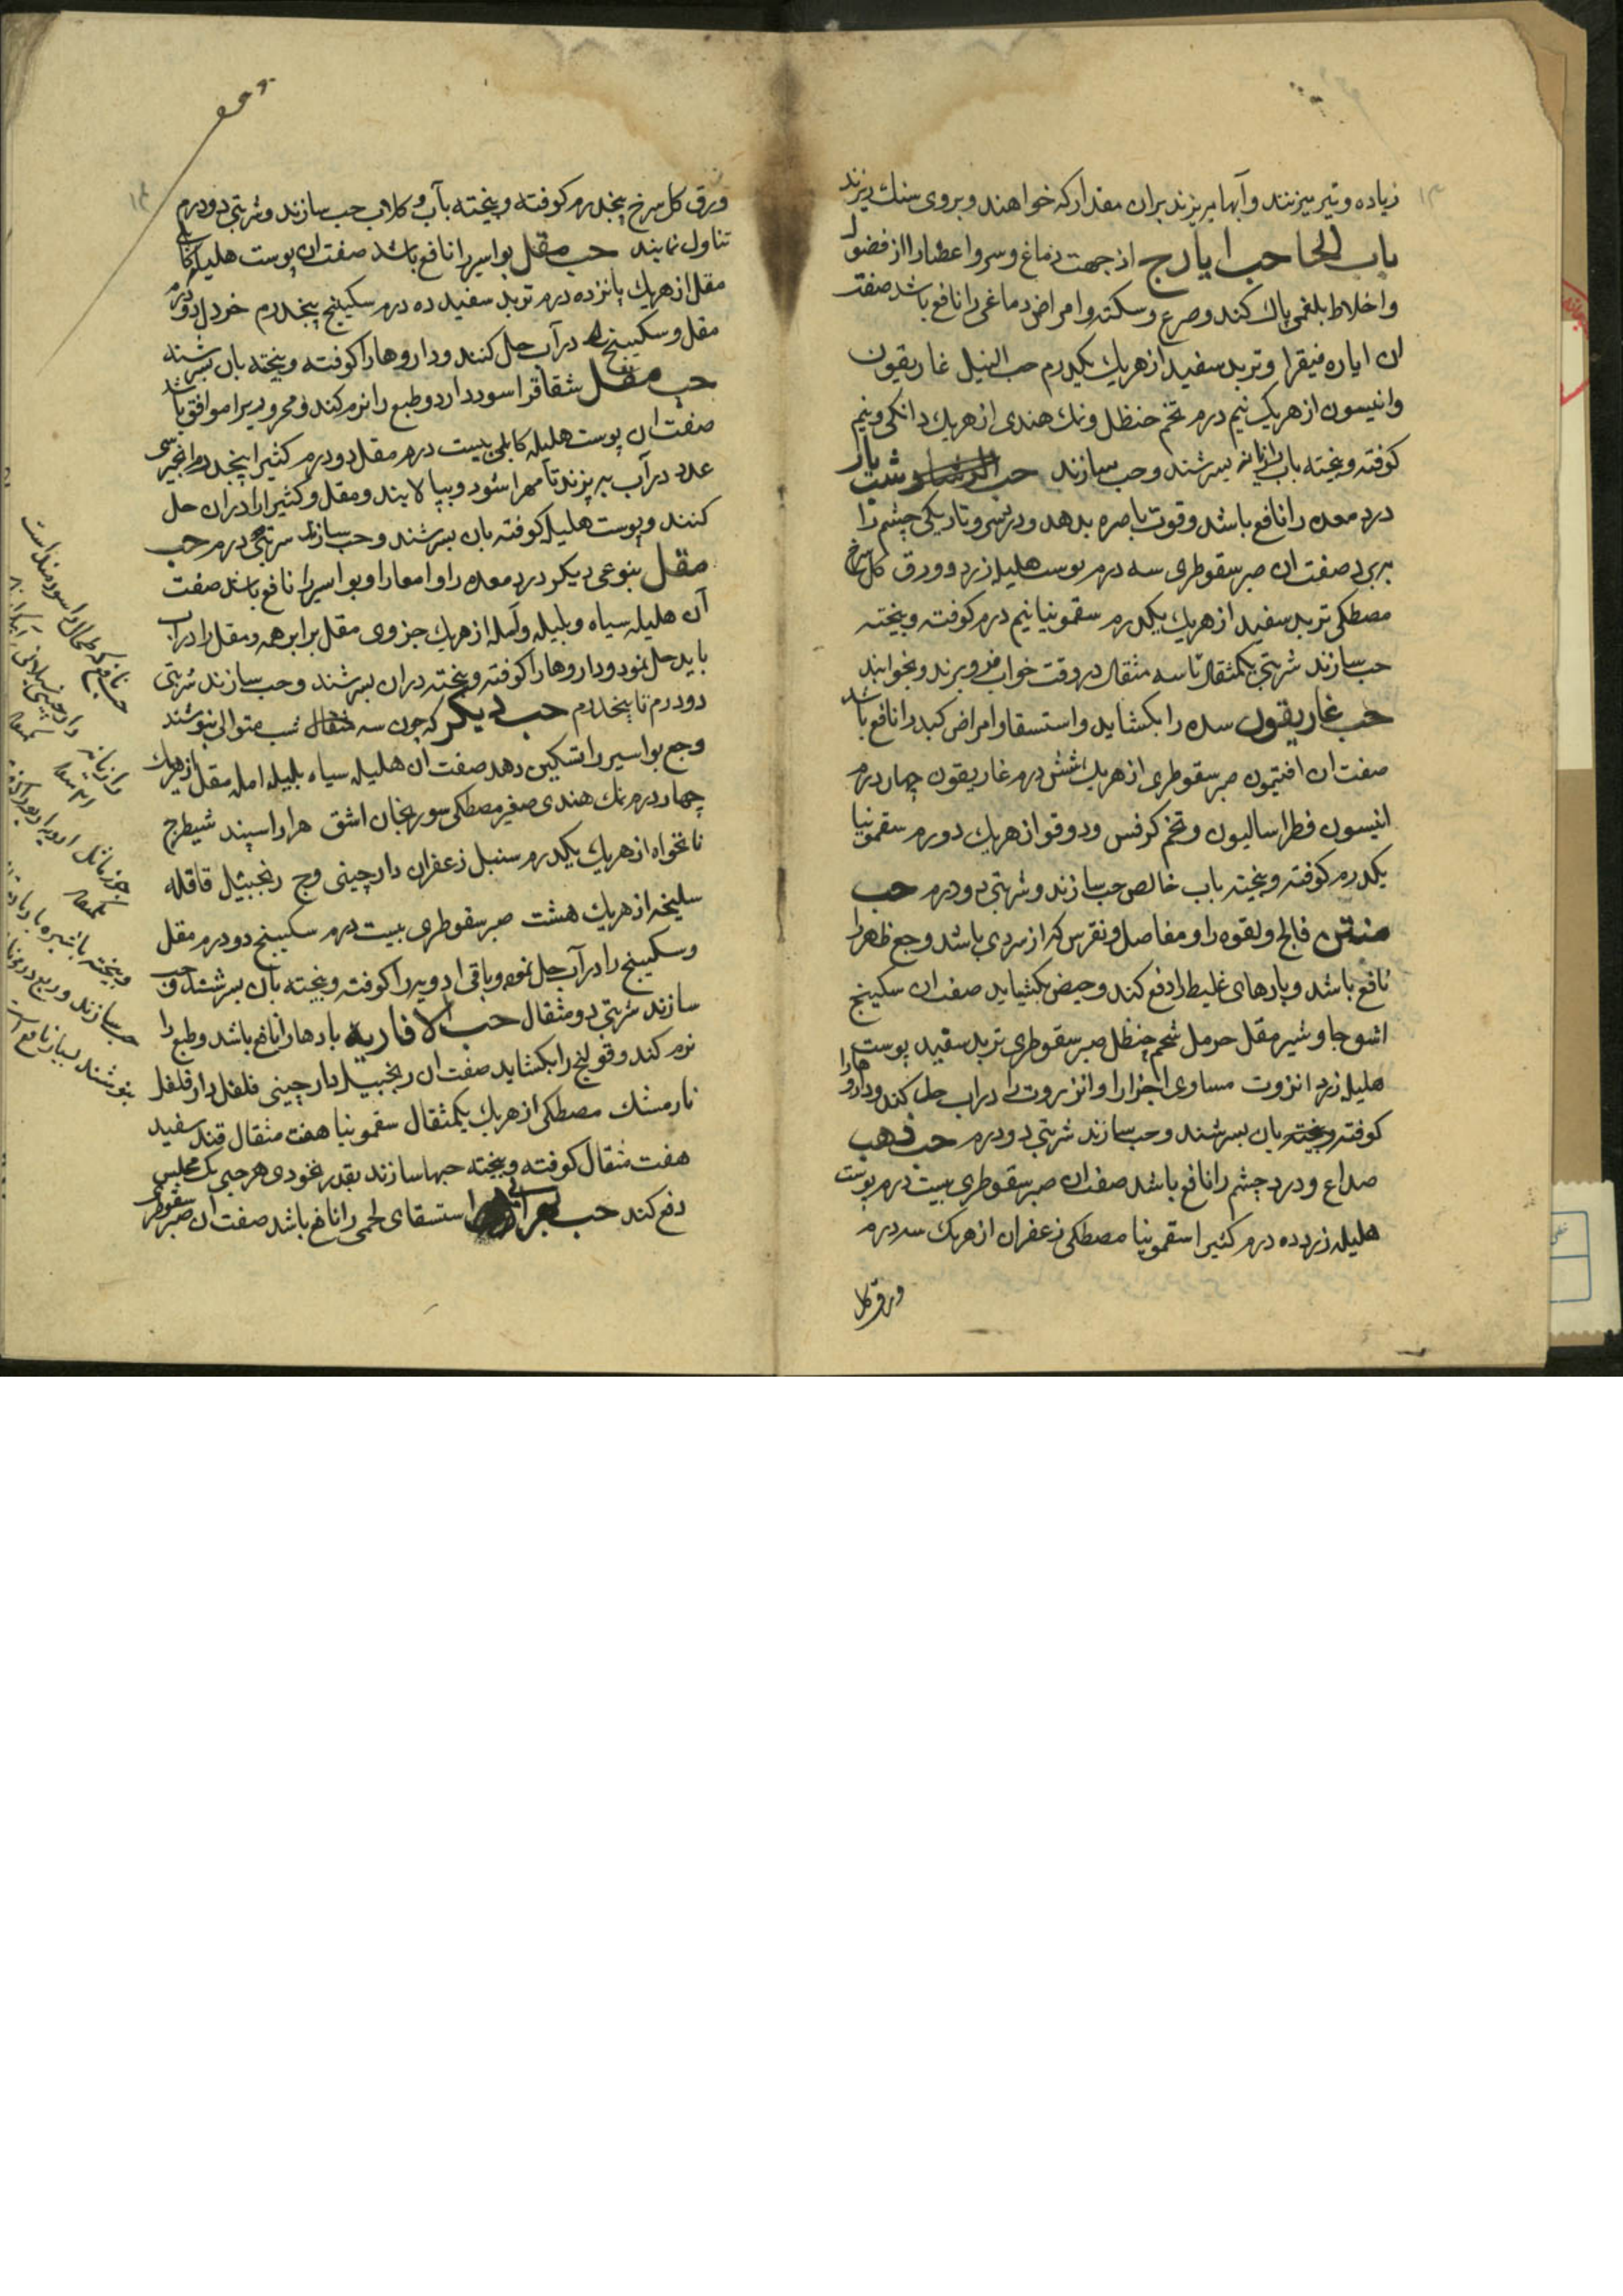 زیاده و تیر میزنند وآبها میریزند بران مقدار که خواهند و بروی سنك ریزند
باب الحا حب ایارج از جهت دماغ وسر و اعضا را از فضول
واخلاط بلغمی پاك کند وصرع وسکته وامراض دماغی را نافع باشد صفت
ان ایاره فیقرا وتربد سفید از هریك یکدرم حب النیل غاریقون
وانیسون از هریك نیم درم تخم حنظل ونمك هندی از هریك دانکی ونیم
کوفته وبیخته باب رازیانه بسرشند وحب سازند حب شبیار
درد معده را نافع باشد وقوت باصره بدهد وتاریکی چشم را
ببرد صفت ان صبر سقوطری سه درم پوست هلیله زرد وورق کل سرخ
مصطکی تربد سفید از هریك یکدرم سقمونیا نیم درم کوفته وبیخته
حب سازند شربتی یکمثقال تا سه مثقال در وقت خواب فرو برند وبخوابند
حب غاریقون سده را بکشاید واستسقا وامراض کبد را نافع باشد
صفت ان افتیمون صبر سقوطری از هریك شش درم غاریقون چهار درم
انیسون فطراسالیون وتخم کرفس ودوقو از هریك دو درم سقمونیا
یکدرم کوفته وبیخته باب خالص حب سازند وشربتی دو درم حب
منتن فالج ولقوه را ومفاصل ونقرس که از سردی باشد وجع ظهر را
نافع باشد وبادهای غلیظ را دفع کند وحیض بکشاید صفت ان سکبینج
اشق جاوشیر مقل حرمل شحم حنظل صبر سقوطری تربد سفید پوست
هلیله زرد انزروت مساوی اجزا را وانزروت را دراب حل کند وداروها را
کوفته وبیخته بان بسرشند وحب سازند شربتی دو درم حب ذهب
صداع ودرد چشم را نافع باشد صفت ان صبر سقوطری بیست درم پوست
هلیله زرد ده درم کثیرا سقمونیا مصطکی زعفران از هریك سه درم
ورق کل
ورق کل سرخ پنجدرم کوفته وبیخته بآب وکلاب حب سازند وشربتی دو درم
تناول نمایند حب مقل بواسیر را نافع باشد صفت ان پوست هلیله کابلی
مقل از هریك پانزده درم تربد سفید ده درم سکبینج پنجدرم خردل دو درم
مقل وسکبینج در آب حل کنند وداروها را کوفته وبیخته بان بسرشند
حب مقل شقاق را سود دارد وطبع را نرم کند ومحرور را موافق باشد
صفت ان پوست هلیله کابلی بیست درم مقل دو درم کثیرا پنجدرم انجیر سی
عدد در آب بپزند تا مهرا شود وبپالایند ومقل وکثیرا را دران حل
کنند وپوست هلیله کوفته بان بسرشند وحب سازند شربتی درم حب
مقل بنوعی دیکر درد معده را وامعا را وبواسیر را نافع باشد صفت
آن هلیله سیاه وبلیله وآمله از هریك جزوی مقل برابر همه ومقل را دراب
باید حل نمود وداروها را کوفته وبیخته دران بسرشند وحب سازند شربتی
دو درم تا پنجدرم حب دیکر که چون سه شب متوالی بنوشند
وجع بواسیر را تسکین دهد صفت ان هلیله سیاه بلیله امله مقل از هریك
چهار درم نمك هندی صغیر مصطکی سورنجان اشق هزار اسپند شیطرج
نانخواه از هریك یکدرم سنبل زعفران دارچینی وج زنجبیل قاقله
سلیخه از هریك هشت صبر سقوطری بیست درم سکبینج دو درم مقل
وسکبینج را در آب حل نموده وباقی ادویه را کوفته وبیخته بان بسرشند وحب
سازند شربتی دو مثقال حب الافاریه بادها را نافع باشد وطبع را
نرم کند وقولنج را بکشاید صفت ان زنجبیل دارچینی فلفل دارفلفل
نارمشك مصطکی از هریك یکمثقال سقمونیا هفت مثقال قند سفید
هفت مثقال کوفته وبیخته حبها سازند بقدر نخودی هر حبی یك مجلس
دفع کند حب استسقای لحمی را نافع باشد صفت ان صبر سقوطری
حب نافع که طحال را سودمند است
وبیخته با شیره
حب سازند
بنوشند بسیار نافع است